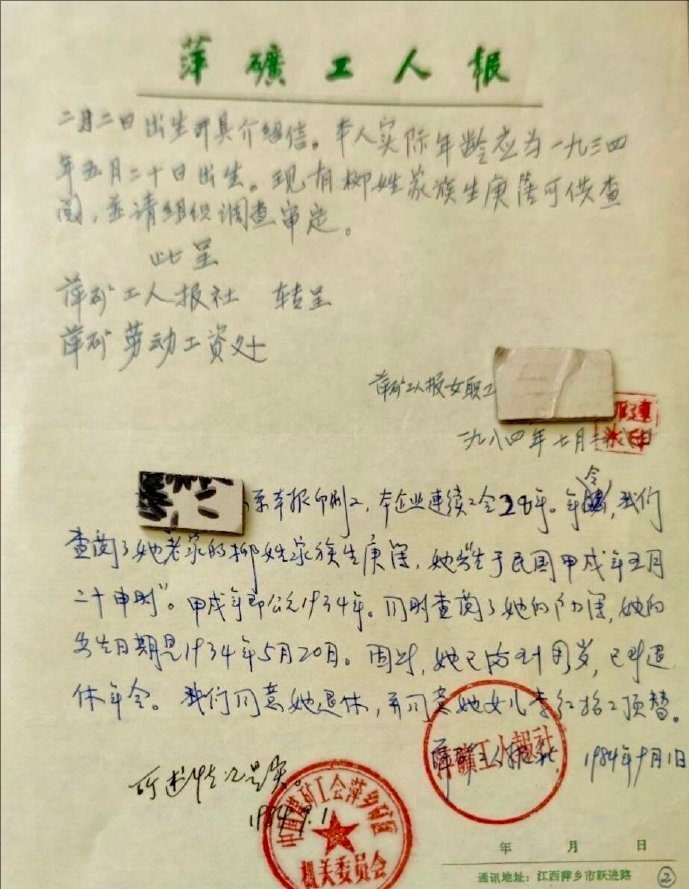 萍礦工人報
二月二日出生开具介绍信。本人实际年龄应为一九三四
年五月二十日出生。现有柳姓家族生庚簿可供查
阅，并请组织调查审定。
此呈
萍矿工人报社 转呈
萍矿劳动工资处
萍矿工人报女职工
一九八四年七月
系本报印刷工，本企业连续工令28年。年令，我们
查阅了她老家的柳姓家族生庚簿，她"生于民国甲戌年五月
二十申时"。甲戌年即公元1934年。同时查阅了她的户簿，她的
出生日期是1934年5月20日。因此，她已满五十周岁，已到退
休年令。我们同意她退休，并同意她女儿李红招工顶替。
萍矿工人报社 1984年9月1日
萍礦工人報社
所述情况是实。
1984.9.1
中国煤矿工会萍乡矿区
机关委员会
年 月 日
通讯地址：江西萍乡市跃进路
②